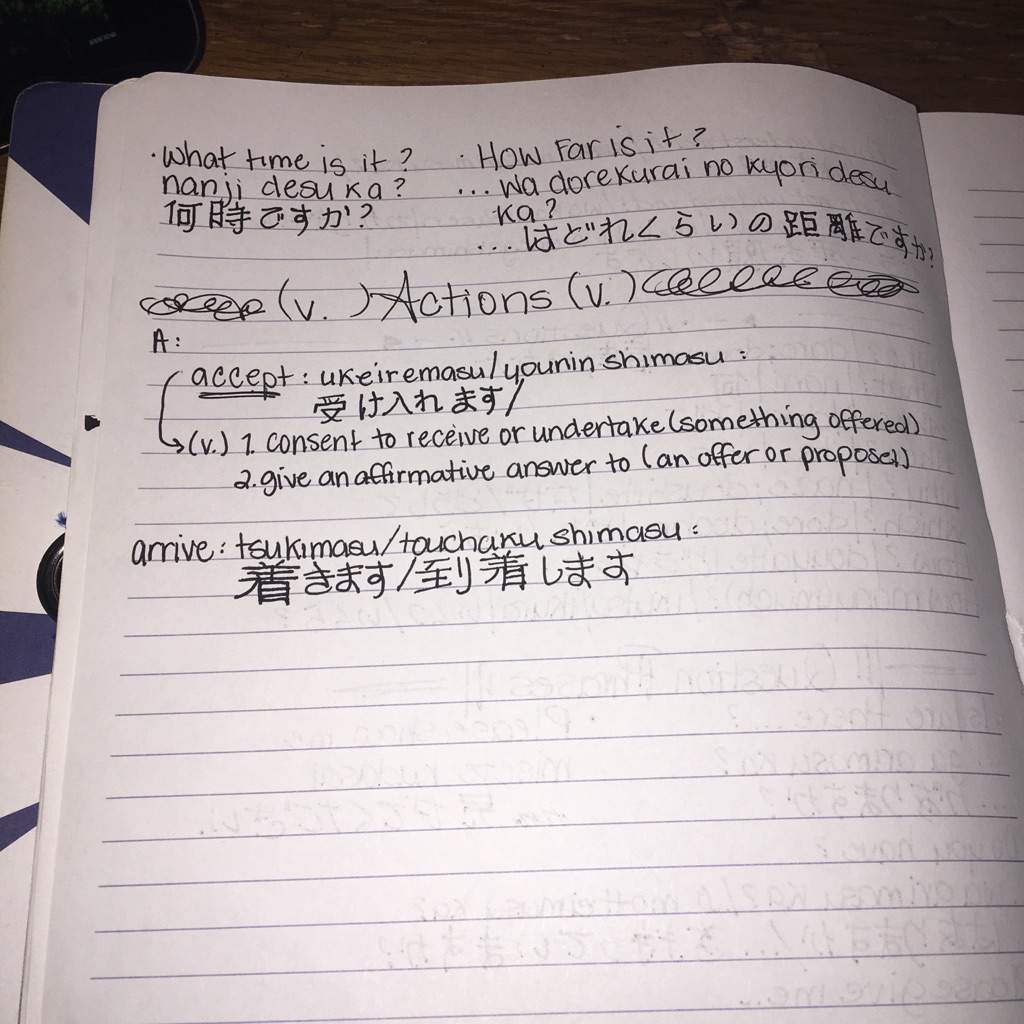 ·What time is it?
nanji desu ka?
何時ですか?
·How Far is it?
...wa dorekurai no kyori desu
ka?
...はどれくらいの距離ですか?
(v.) Actions (v.)
A:
accept: ukeiremasu/younin shimasu:
受け入れます/
→(v.) 1. consent to receive or undertake (something offered)
2. give an affirmative answer to (an offer or proposel)
arrive: tsukimasu/touchaku shimasu:
着きます/到着します